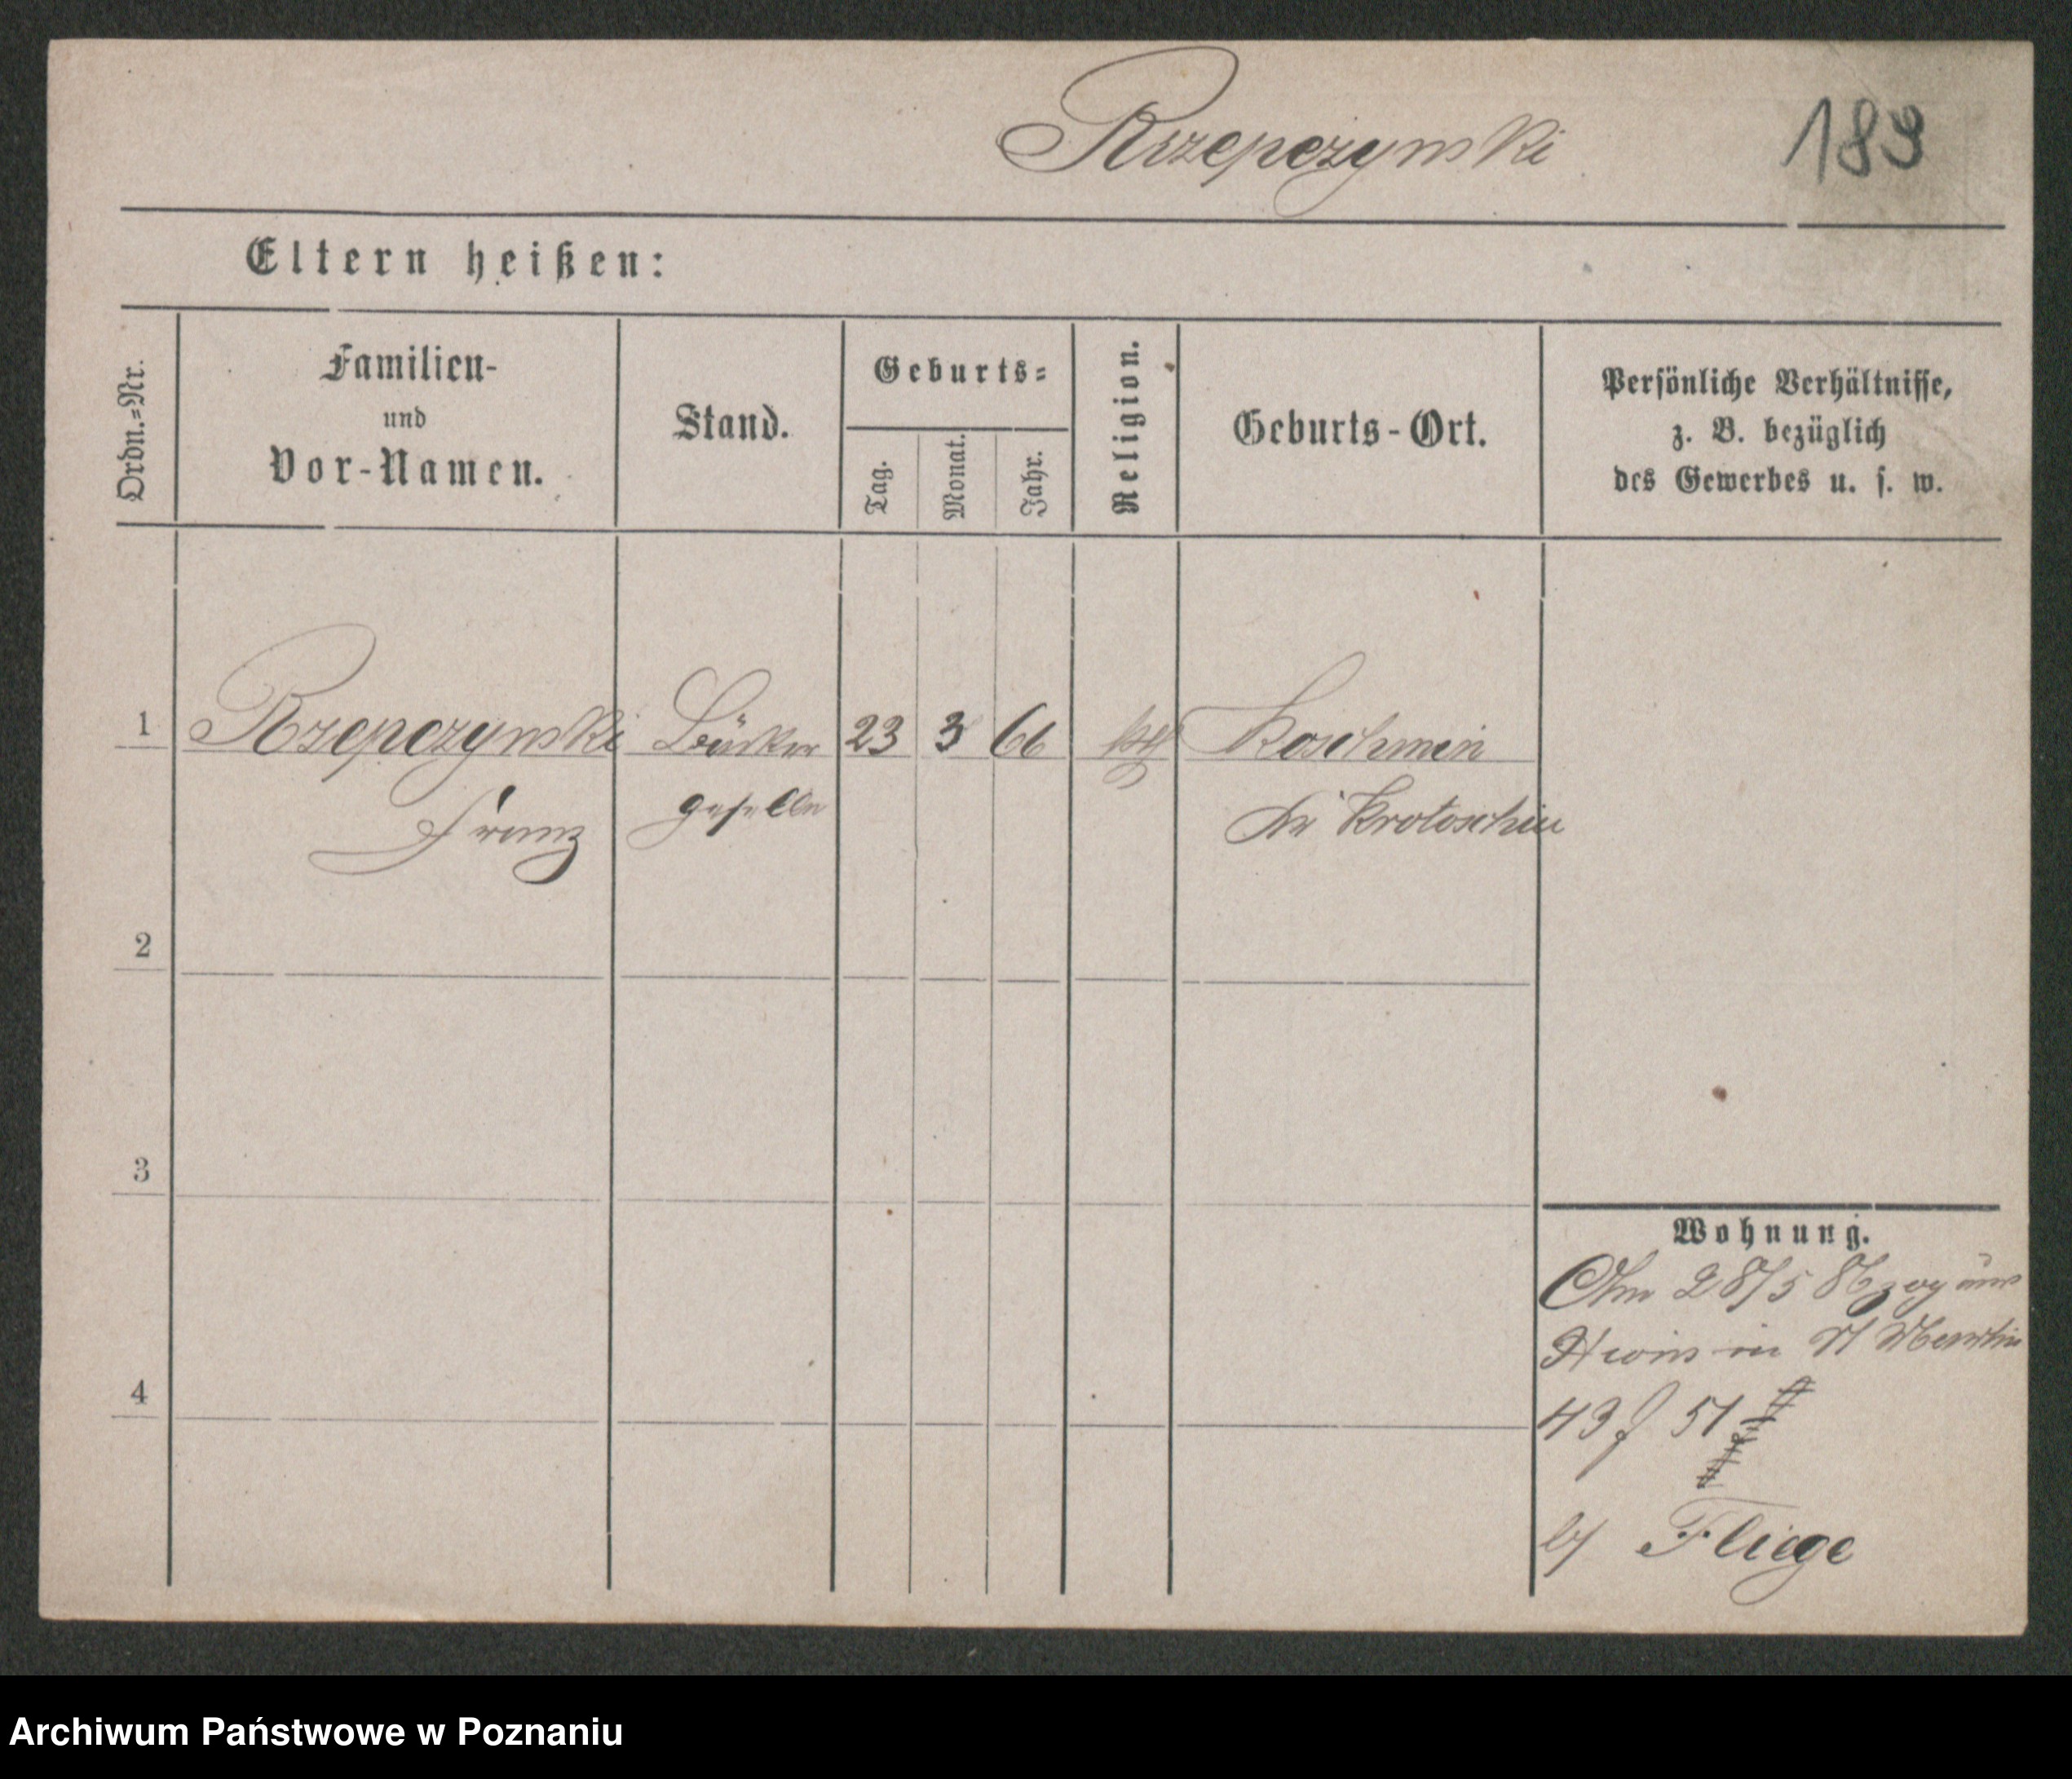 Rzepczynski
189
Eltern heißen:
Ordn.=Nr.
Familien-
und
Vor-Namen.
Stand.
Geburts=
Tag.
Monat.
Jahr.
Religion.
Geburts-Ort.
Persönliche Verhältnisse,
z. B. bezüglich
des Gewerbes u. s. w.
1 Rzepczynski Bäcker 23 3 66 kth Koschmin
Franz geselle Kr Krotoschin
2
3
4
Wohnung.
Am 28/5 86 zog aus
in St Martin
43 51
b/ Fliege
Archiwum Państwowe w Poznaniu